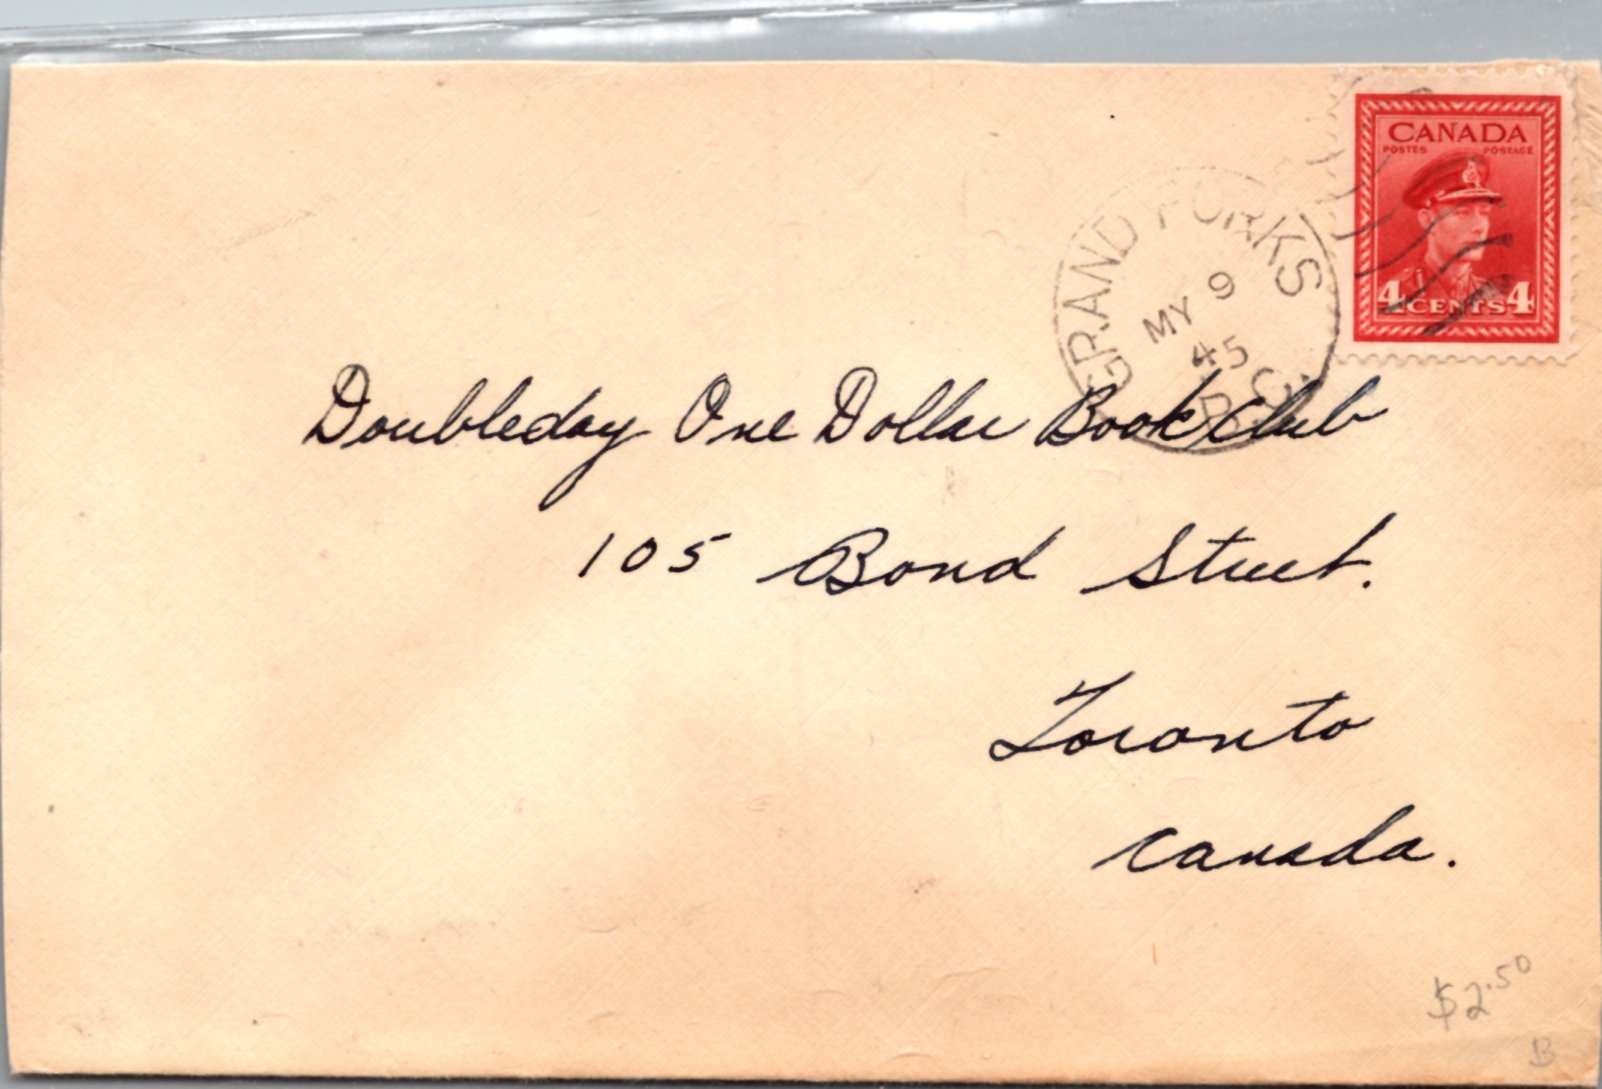 CANADA
POSTES POSTAGE
4 CENTS 4
GRAND FORKS
MY 9
45
B.C.
Doubleday One Dollar Book Club
105 Bond Street.
Toronto
Canada.
$2.50
B